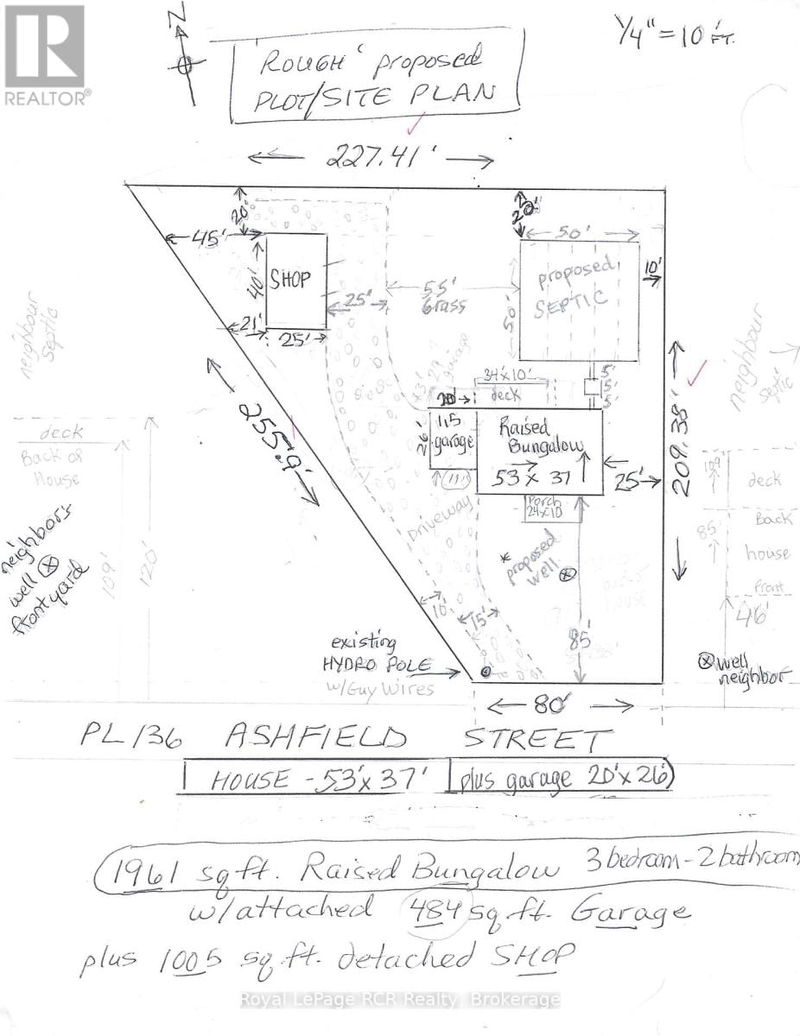 N
1/4" = 10' FT.
'ROUGH' proposed
PLOT/SITE PLAN
REALTOR®
227.41'
20'
20'
45'
50'
40'
SHOP
proposed
SEPTIC
10'
25'
55'
Grass
50'
21'
25'
neighbour
Septic
neighbour
Septic
garage
34'x10'
deck
5'
5'
5'
20'
26'
115
garage
Raised
Bungalow
53 x 37
25'
209.38'
255.9'
deck
Back of
House
109'
deck
Porch
24x10
Driveway
Back
85'
house
neighbor's
well
front yard
109'
120'
* proposed
well
front
46'
10'
15'
85'
existing
HYDRO POLE
w/Guy Wires
well
neighbor
80'
PL 136 ASHFIELD STREET
HOUSE - 53'x 37' plus garage 20'x 26'
1961 sq ft. Raised Bungalow 3 bedroom - 2 bathroom
w/attached 484 sq. ft. Garage
plus 1005 sq ft. detached SHOP
Royal LePage RCR Realty, Brokerage